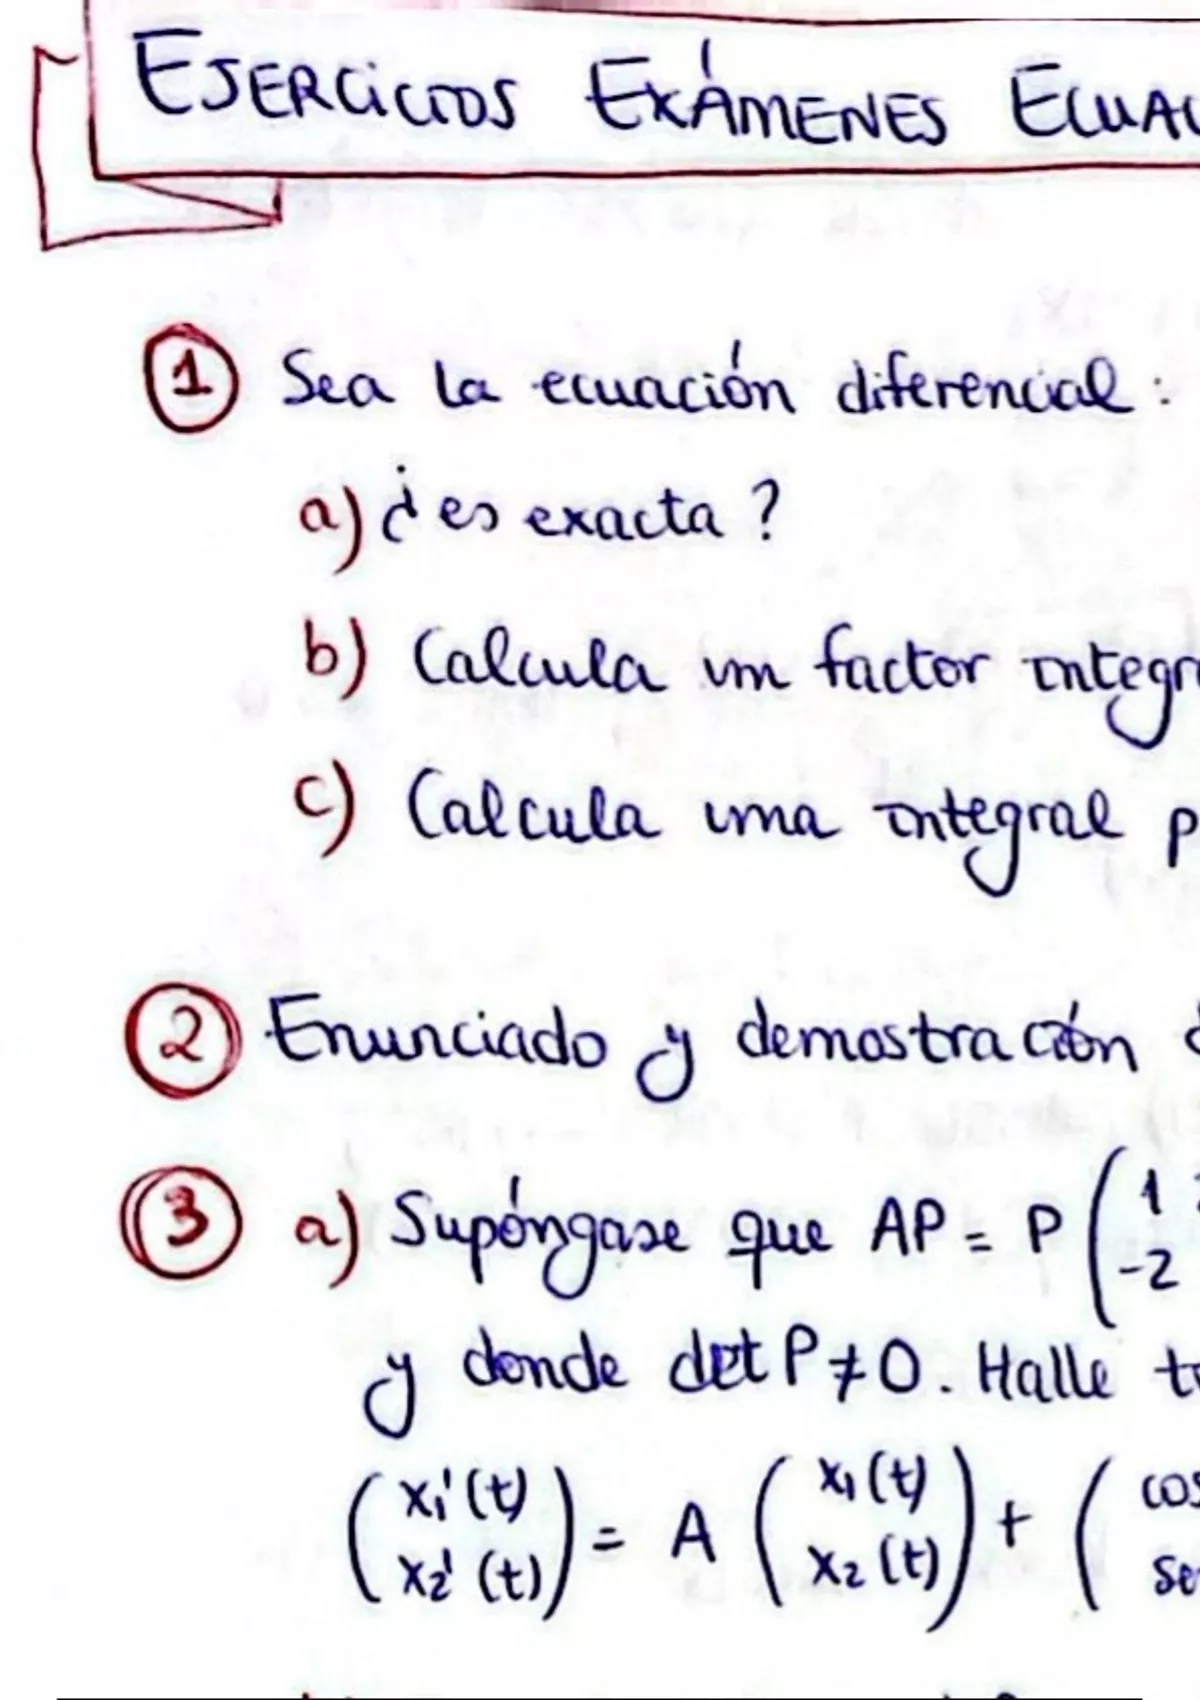 EJERCICIOS EXÁMENES ECUAC
1 Sea la ecuación diferencial:
a) ¿es exacta?
b) Calcula un factor integr
c) Calcula una integral p
2 Enunciado y demostración d
3 a) Supóngase que AP = P ( 1
-2
y donde det P ≠ 0. Halle t
( x₁'(t) ) = A ( x₁(t) ) + ( cos
x₂'(t) x₂(t) se